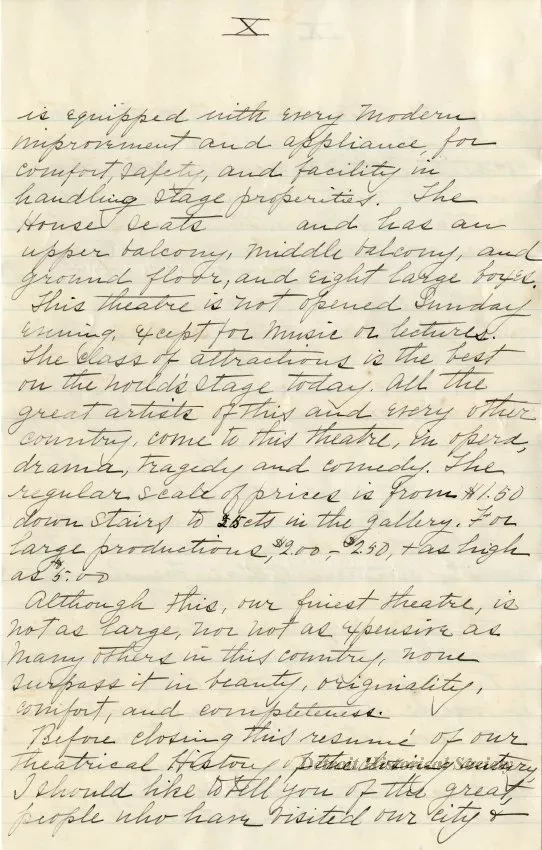 X
is equipped with every modern
improvement and appliance, for
comfort, safety, and facility in
handling stage properities. The
House seats and has an
upper balcony, middle balcony, and
ground floor, and eight large boxes.
This theatre is not opened Sunday
evening, except for music or lectures.
The class of attractions is the best
on the world's stage today. All the
great artists of this and every other
country, come to this theatre, in opera,
drama, tragedy and comedy. The
regular scale of prices is from $1.50
down stairs to cts in the gallery. For
large productions, $2.00, - $2.50, + as high
as $5.00
Although this, our finest theatre, is
not as large, nor not as expensive as
many others in this country, none
surpass it in beauty, originality,
comfort, and completeness.
Before closing this resumé of our
theatrical History of the closing century,
Detroit Historical Society
I should like to tell you of the great
people who have visited our city &